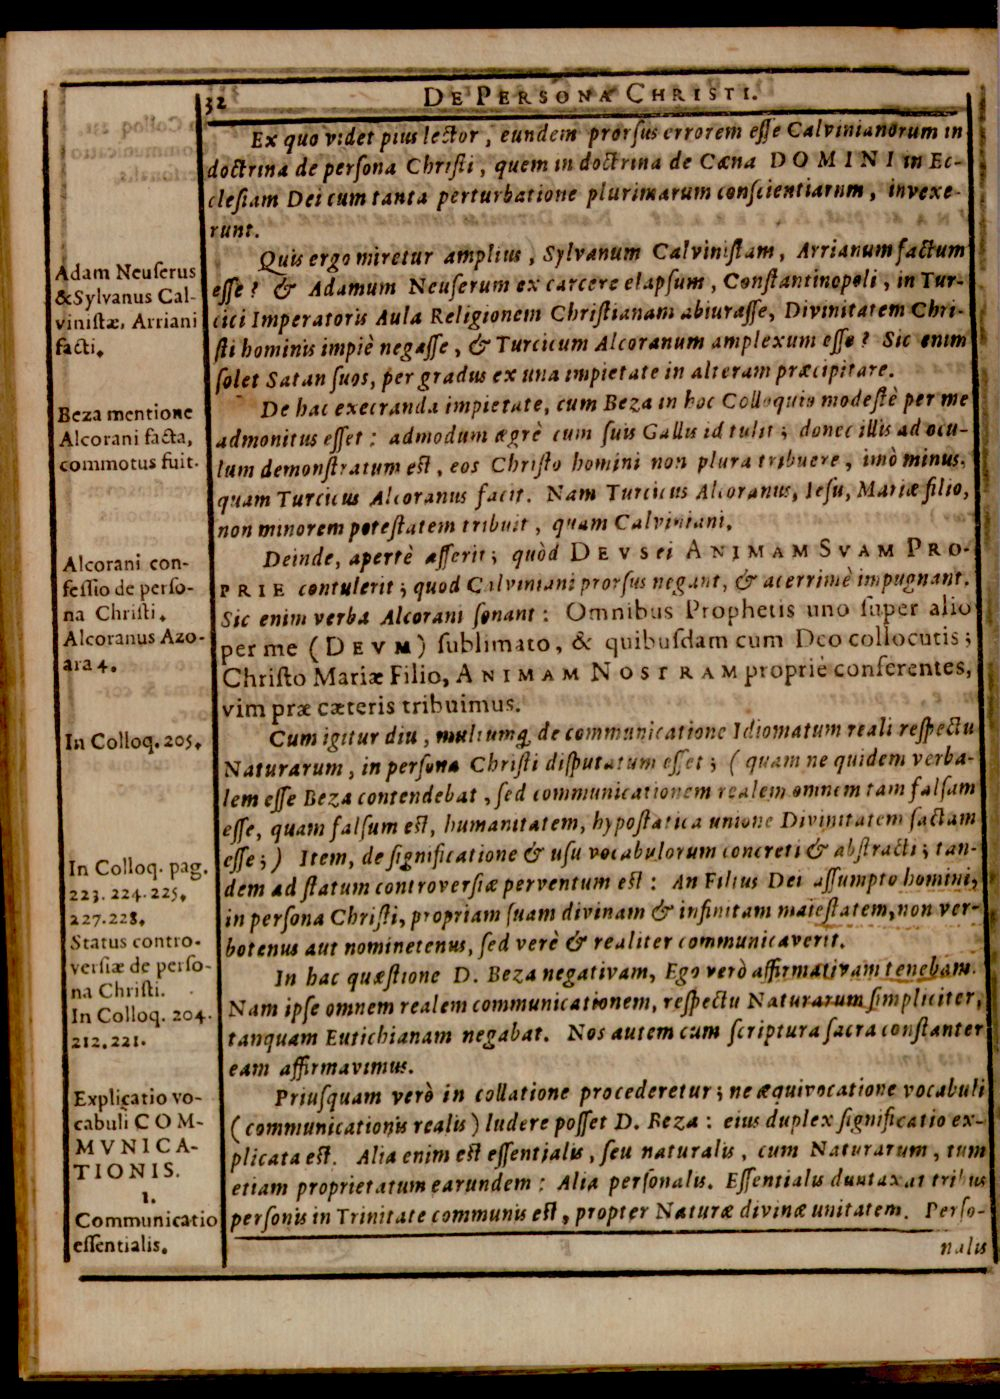 32
DE PERSONA CHRISTI.
Ex quo videt pius lector, eundem prorſus errorem eſſe Calvinianorum in
doctrina de perſona Chriſti, quem in doctrina de Cœna DOMINI in Ec-
cleſiam Dei cum tanta perturbatione plurimarum conſcientiarum, invexe-
runt.
Quis ergo miretur amplius, Sylvanum Calviniſtam, Arrianum factum
eſſe? & Adamum Neuſerum ex carcere elapſum, Conſtantinopoli, in Tur-
cici Imperatoris Aula Religionem Chriſtianam abiuraſſe, Divinitatem Chri-
ſti hominis impiè negaſſe, & Turcicum Alcoranum amplexum eſſe? Sic enim
ſolet Satan ſuos, per gradus ex una impietate in alteram præcipitare.
De hac execranda impietate, cum Beza in hoc Colloquio modeſtè per me
admonitus eſſet: admodum ægrè cum ſuis Gallis id tulit; donec illis ad ocu-
lum demonſtratum eſt, eos Chriſto homini non plura tribuere, imò minus,
quam Turcicus Alcoranus facit. Nam Turcicus Alcoranus, Ieſu, Mariæ filio,
non minorem poteſtatem tribuit, quam Calviniani.
Deinde, apertè aſſerit; quòd DEVS ei ANIMAM SVAM PRO-
PRIE contulerit; quod Calviniani prorſus negant, & acerrimè impugnant.
Sic enim verba Alcorani ſonant: Omnibus Prophetis uno ſuper alio
per me (DEVM) ſublimato, & quibuſdam cum Deo collocutis;
Chriſto Mariæ Filio, ANIMAM NOSTRAM propriè conferentes,
vim præ cæteris tribuimus.
Cum igitur diu, multumq́; de communicatione Idiomatum reali reſpectu
Naturarum, in perſona Chriſti diſputatum eſſet; (quam ne quidem verba-
lem eſſe Beza contendebat, ſed communicationem realem omnem tam falſam
eſſe, quam falſum eſt, humanitatem, hypoſtatica unione Divinitatem factam
eſſe;) Item, de ſignificatione & uſu vocabulorum concreti & abſtracti; tan-
dem ad ſtatum controverſiæ perventum eſt: An Filius Dei aſſumpto homini,
in perſona Chriſti, propriam ſuam divinam & infinitam maieſtatem, non ver-
botenus aut nominetenus, ſed verè & realiter communicaverit.
In hac quæſtione D. Beza negativam, Ego verò affirmativam tenebam.
Nam ipſe omnem realem communicationem, reſpectu Naturarum ſimpliciter,
tanquam Eutichianam negabat. Nos autem cum ſcriptura ſacra conſtanter
eam affirmavimus.
Priuſquam verò in collatione procederetur; ne æquivocatione vocabuli
(communicationis realis) ludere poſſet D. Beza: eius duplex ſignificatio ex-
plicata eſt. Alia enim eſt eſſentialis, ſeu naturalis, cum Naturarum, tum
etiam proprietatum earundem: Alia perſonalis. Eſſentialis duntaxat tribus
perſonis in Trinitate communis eſt, propter Naturæ divinæ unitatem. Perſo-
nalis
Adam Neuſerus
& Sylvanus Cal-
viniſtæ, Arriani
facti.
Beza mentione
Alcorani facta,
commotus fuit.
Alcorani con-
feſſio de perſo-
na Chriſti.
Alcoranus Azo-
ara 4.
In Colloq. 205.
In Colloq. pag.
223. 224. 225.
227. 228.
Status contro-
verſiæ de perſo-
na Chriſti.
In Colloq. 204.
212. 221.
Explicatio vo-
cabuli COM-
MVNICA-
TIONIS.
1.
Communicatio
eſſentialis.